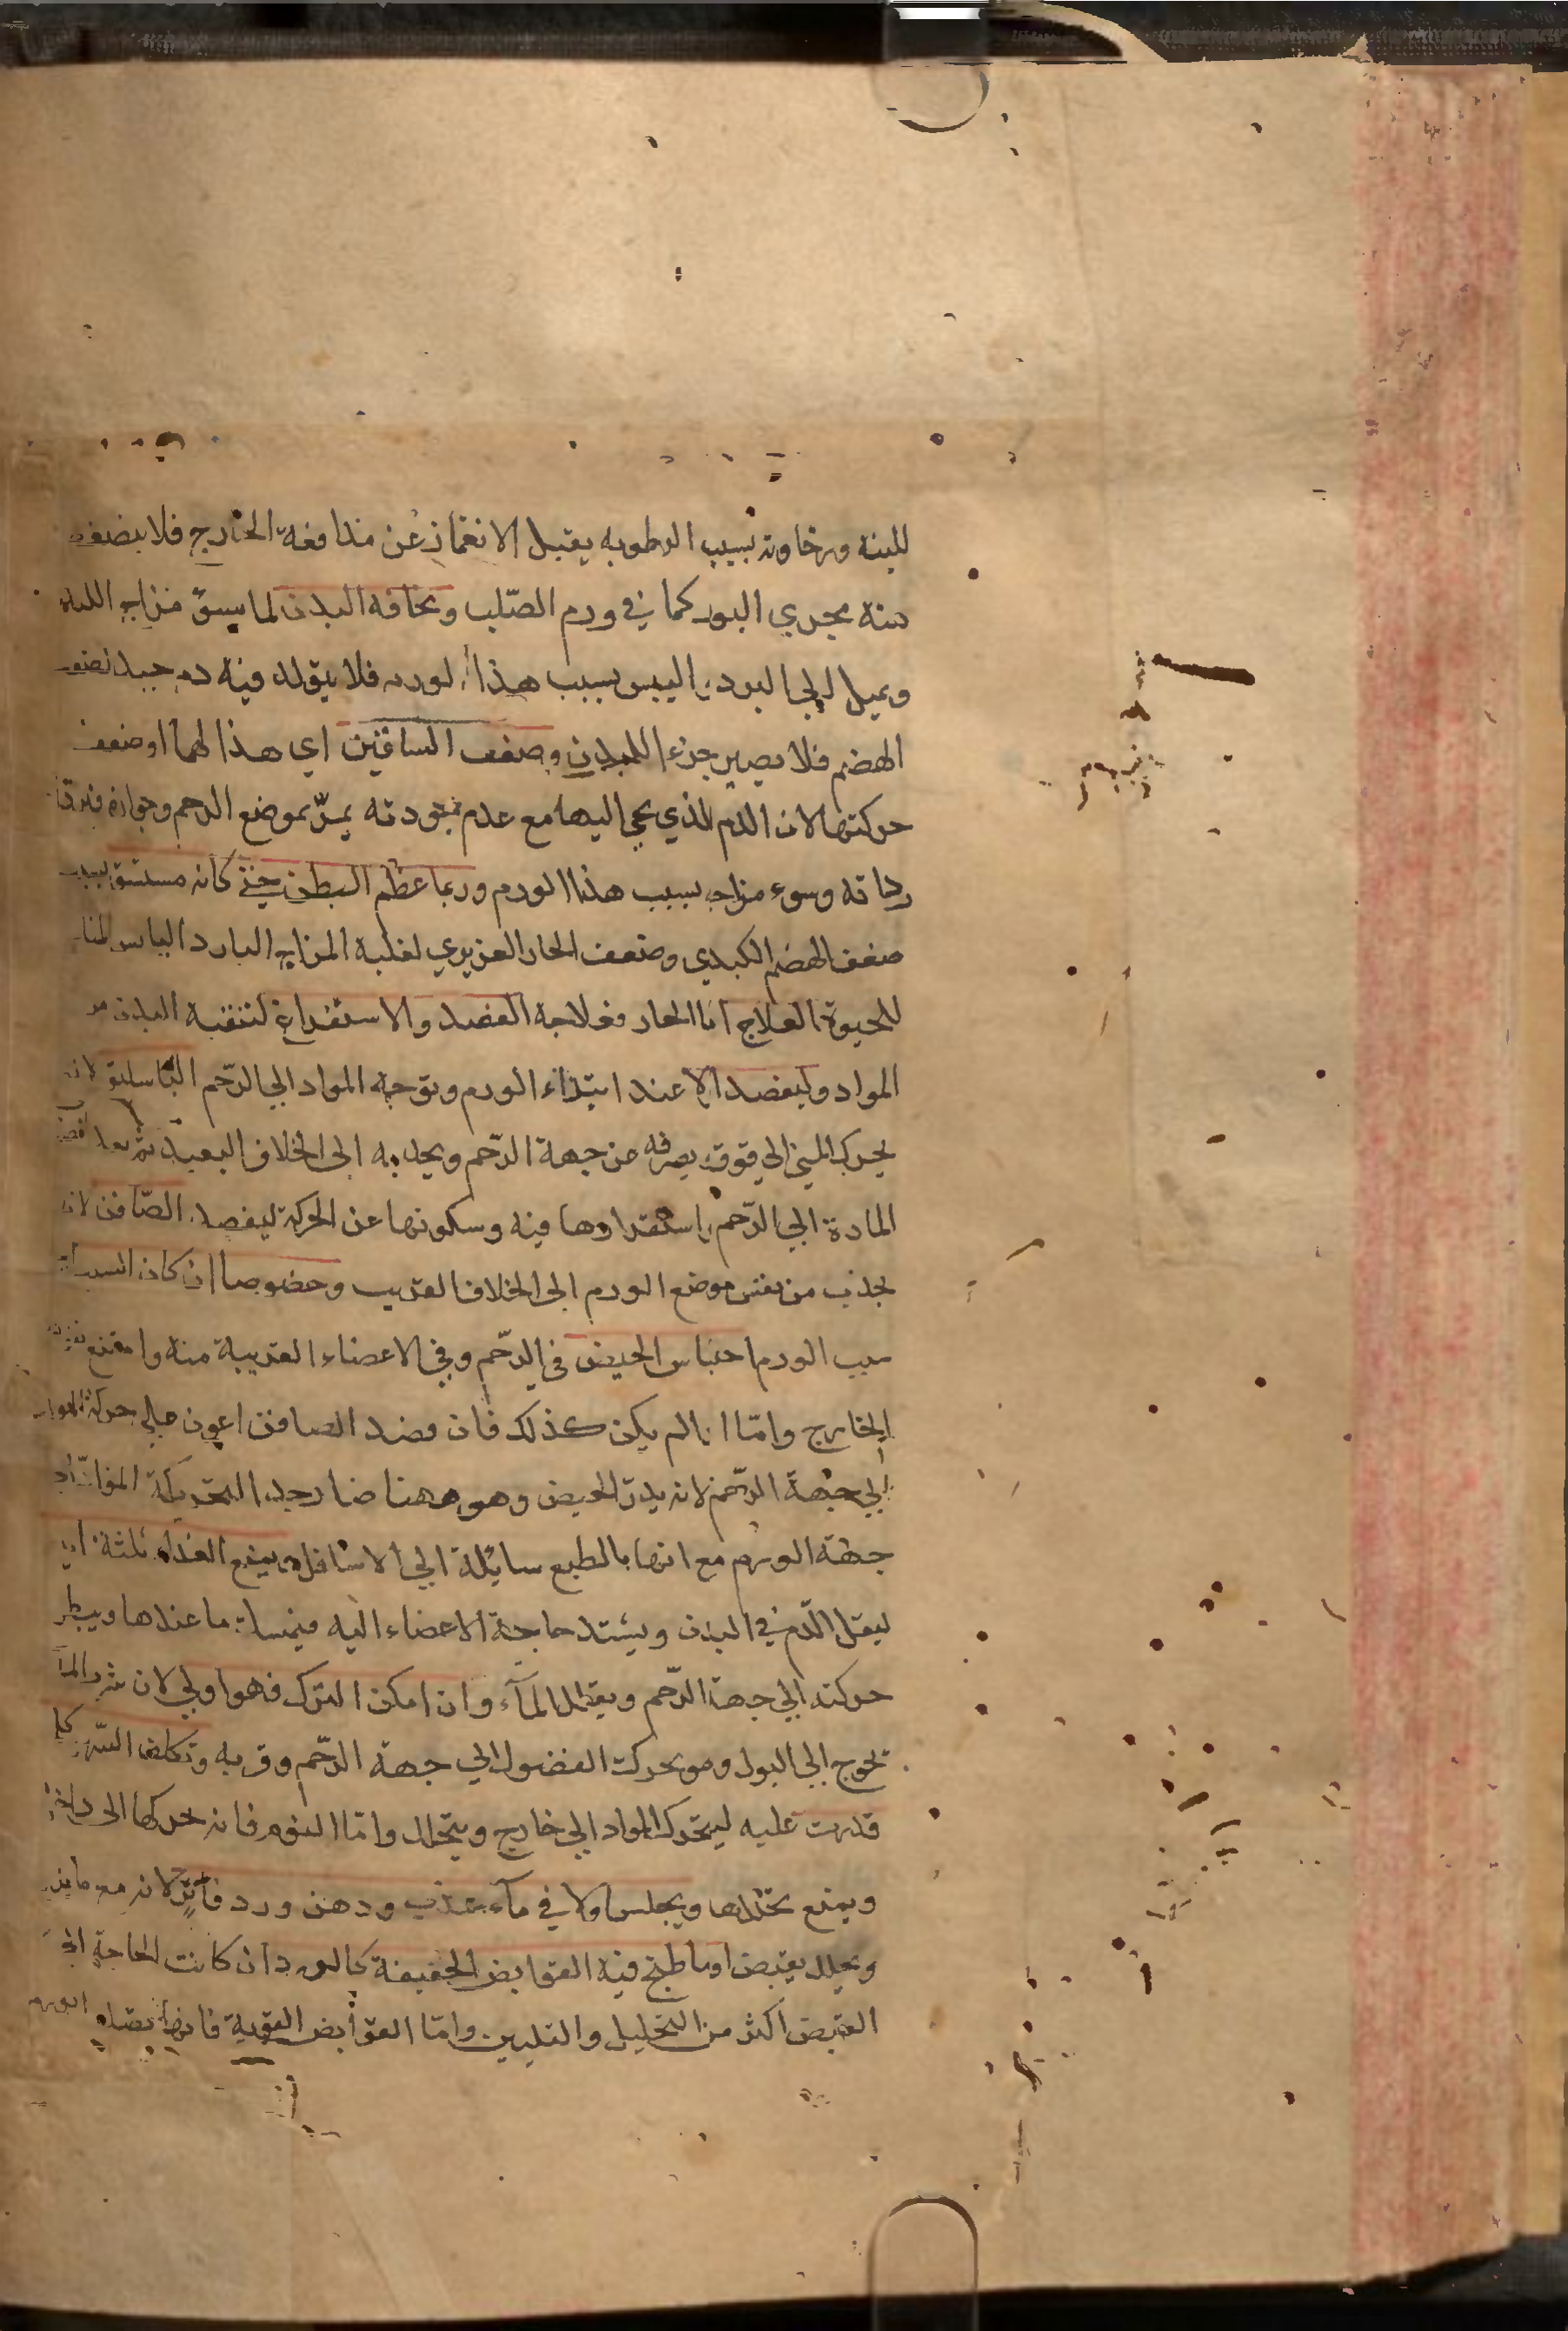 للينه ورخاوته بسبب الرطوبه يقبل الانغماز عن مدافعة الخارج فلا يضغط
منه مجري البول كما في ورم الصّلب ونحافه البدن لما يسوٌ مزاج الكبد
ويميل الي البرد واليبس بسبب هذا الورم فلا يتولد فيه دم جيد لضعف
الهضم فلا يصير جزءا للبدن وضعف الساقين اي هذا لهما او ضعف
حركتها لان الدم الذي يجي اليها مع عدم جودته يمرّ بموضع الرحم وجواره
رداته وسوء مزاجه بسبب هذا الورم وربما عظم البطن حتي كانه مستسق بسبب
ضعف الهضم الكبدي وضعف الحار الغريزي لغلبة المزاج البارد اليابس
للحيوة العلاج اما الحار فعلاجه الفصد والاستفراغ لتنقية البدن من
المواد وليفصد الا عند ابتداء الورم وتوجه المواد الي الرّحم الباسليق لانه
يحرك الي فوق يصرفه عن جهة الرّحم ويجذبه الي الخلاف البعيد ثم بعد
المادة الي الرّحم واستقرارها فيه وسكونها عن الحركة ليفصد الصّافن لانه
يجذب من نفس موضع الورم الي الخلاف القريب وخصوصا ان كان السبب
سبب الورم احتباس الحيض في الرّحم وفي الاعضاء القريبة منه وامتنع
الخارج وامّا اذا لم يكن كذلك فان فصد الصافن اعون علي حركة المواد
الي جهة الرّحم لانه يدرّ الحيض وهو ههنا ضار جدا لتحريكه الموادّ الي
جهة الورم مع انها بالطبع سايلة الي الاسافل ويمنع الغذاء ثلثة ايام
ليقل الدّم في البدن ويشتد حاجة الاعضاء اليه فيمسك ما عندها ويبطل
حركته الي جهة الرّحم ويقلل المآء وان امكن الترك فهو اولي لان شرب المآ
تحوج الي البول وهو يحرك الفضول الي جهة الرّحم وقربه وتكلف السّهر كلما
قدرت عليه ليتحرك المواد الي خارج ويتحلل وامّا النوم فانه يحركها الي داخل
ويمنع تحللها ويجلس اولا في مآء عذب ودهن ورد فاتر لانه مع ما
ويحلل يقبض او ما طبخ فيه القوابض الخفيفة كالورد ان كانت الحاجة الي
القبض اكثر من التحليل والتليين وامّا القوابض القوية فانها يصلب الورم